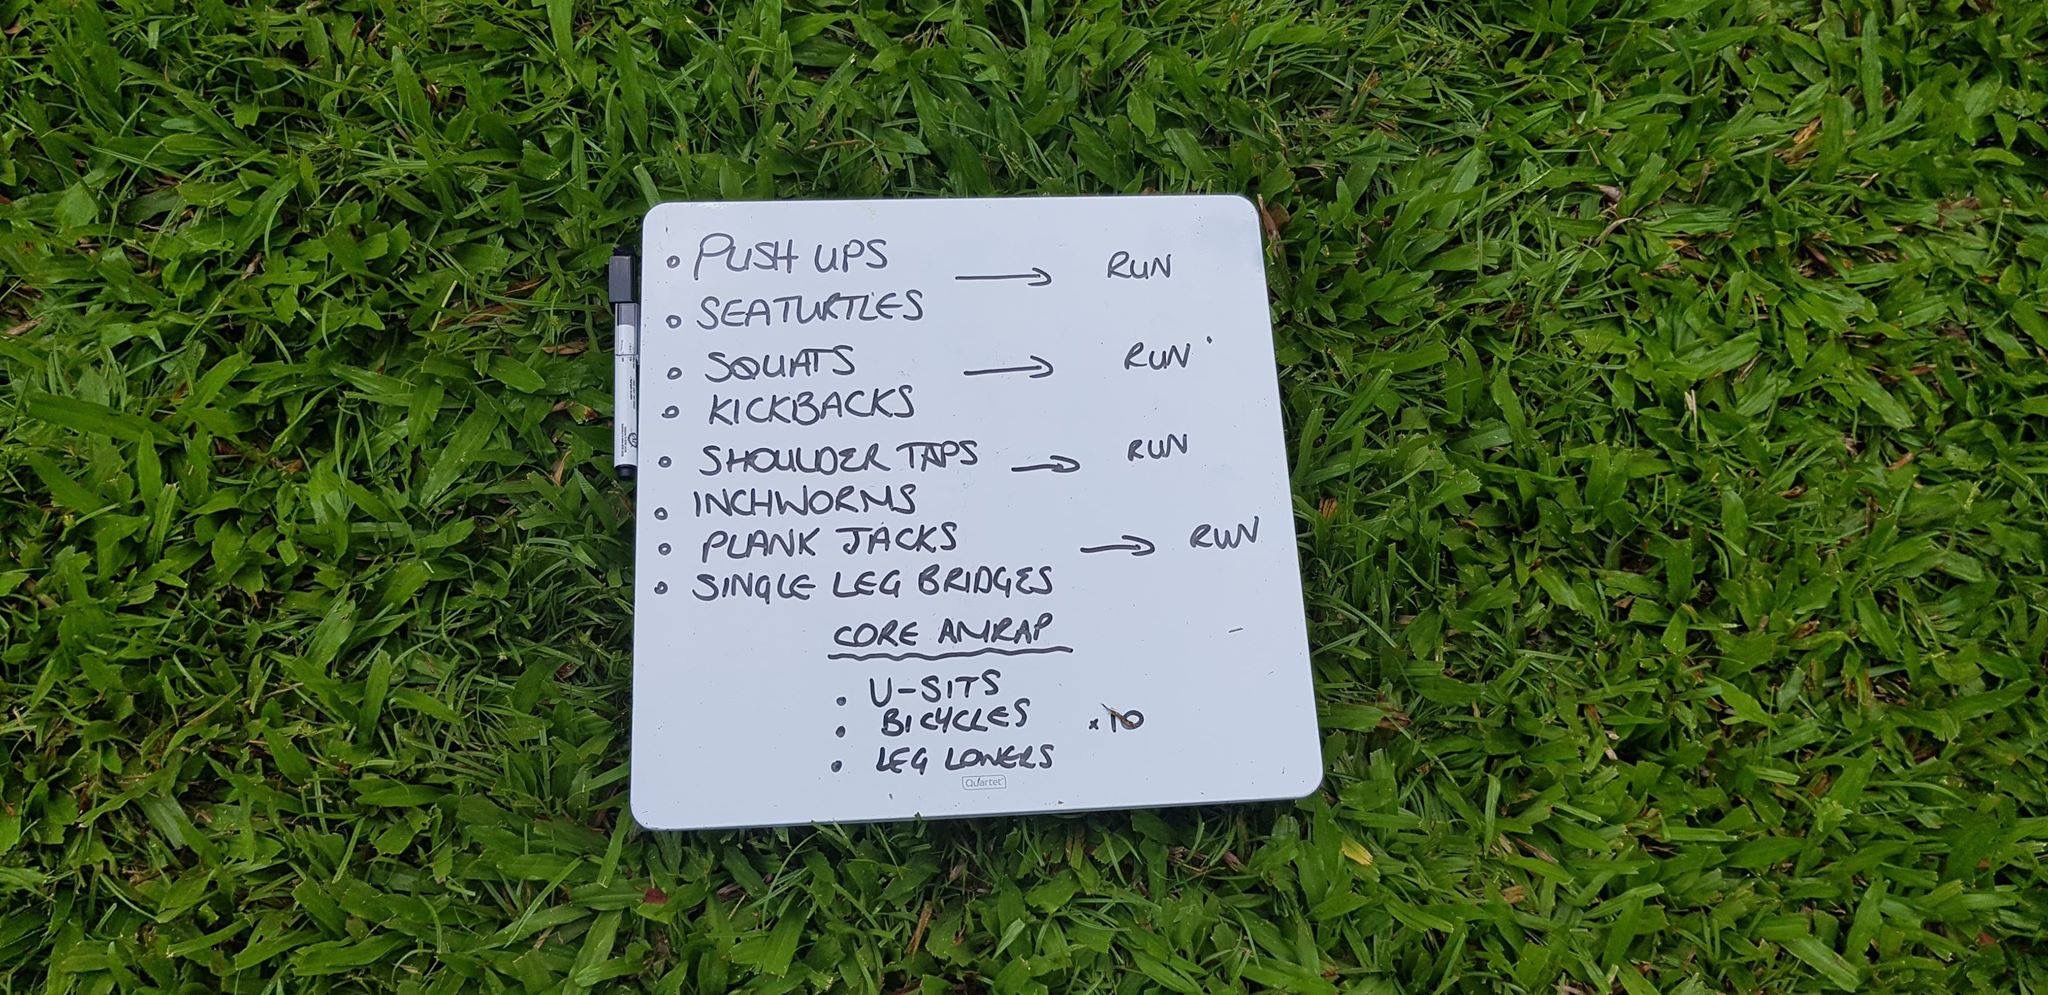 • PUSH UPS → RUN
• SEATURTLES
• SQUATS → RUN
• KICKBACKS
• SHOULDER TAPS → RUN
• INCHWORMS
• PLANK JACKS → RUN
• SINGLE LEG BRIDGES
CORE AMRAP
• U-SITS
• BICYCLES x10
• LEG LOWERS
Quartet